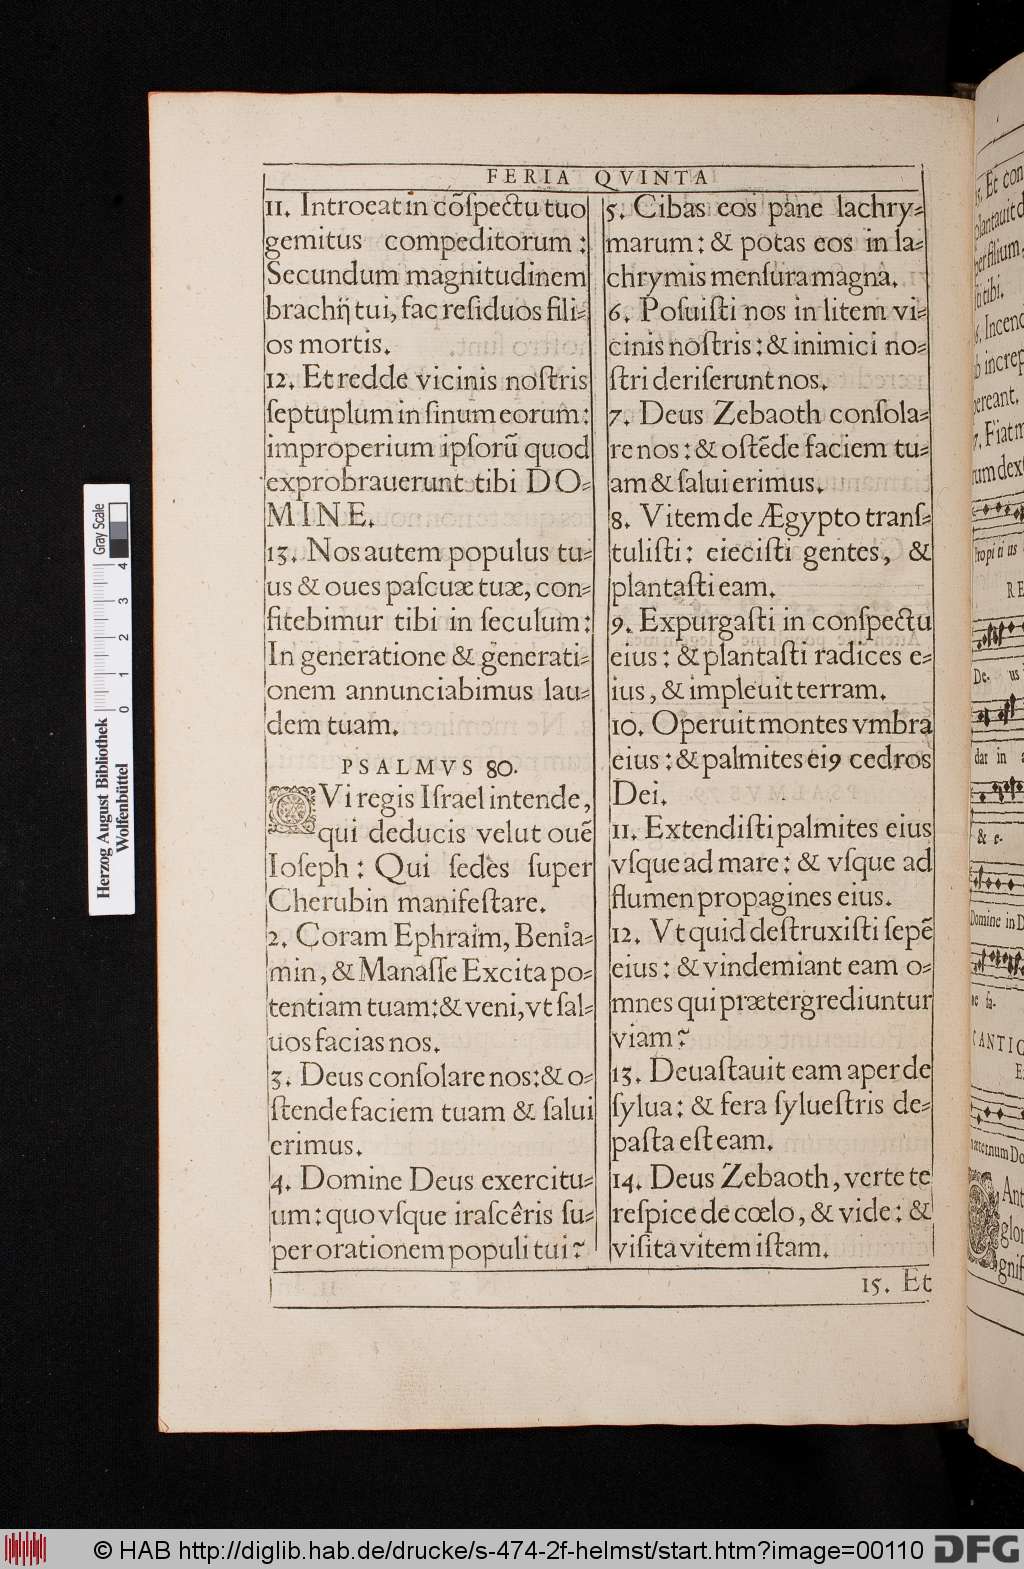 FERIA QVINTA
11. Introeat in cõſpectu tuo
gemitus compeditorum :
Secundum magnitudinem
brachij tui, fac reſiduos fili-
os mortis.
12. Et redde vicinis noſtris
ſeptuplum in ſinum eorum:
improperium ipſorũ quod
exprobrauerunt tibi DO-
MINE.
13. Nos autem populus tu-
us & oues paſcuæ tuæ, con-
fitebimur tibi in ſeculum:
In generatione & generati-
onem annunciabimus lau-
dem tuam.
PSALMVS 80.
QVi regis Iſrael intende,
qui deducis velut ouẽ
Ioſeph : Qui ſedes ſuper
Cherubin manifeſtare.
2. Coram Ephraim, Benia-
min, & Manaſſe Excita po-
tentiam tuam: & veni, vt ſal-
uos facias nos.
3. Deus conſolare nos: & o-
ſtende faciem tuam & ſalui
erimus.
4. Domine Deus exercitu-
um: quo vſque iraſcêris ſu-
per orationem populi tui?
5. Cibas eos pane lachry-
marum : & potas eos in la-
chrymis menſura magna.
6. Poſuiſti nos in litem vi-
cinis noſtris : & inimici no-
ſtri deriſerunt nos.
7. Deus Zebaoth conſola-
re nos : & oſtẽde faciem tu-
am & ſalui erimus.
8. Vitem de Ægypto tranſ-
tuliſti: eieciſti gentes, &
plantaſti eam.
9. Expurgaſti in conſpectu
eius : & plantaſti radices e-
ius, & impleuit terram.
10. Operuit montes vmbra
eius : & palmites ei9 cedros
Dei.
11. Extendiſti palmites eius
vſque ad mare : & vſque ad
flumen propagines eius.
12. Vt quid deſtruxiſti ſepẽ
eius : & vindemiant eam o-
mnes qui prætergrediuntur
viam?
13. Deuaſtauit eam aper de
ſylua: & fera ſylueſtris de-
paſta eſt eam.
14. Deus Zebaoth, verte te
reſpice de cœlo, & vide : &
viſita vitem iſtam.
15. Et
5. Et con
plantauit d
per filium
ti tibi.
6. Incenſ
b increp
pereant.
7. Fiat m
rum dext
Propiti us
RE
De- us
dar in a
& e-
Domine in D
ne ſa-
CANTIC
aternum Do
Ant
glor
gnif
Herzog August Bibliothek
Wolfenbüttel
0 1 2 3 4
Gray Scale
© HAB http://diglib.hab.de/drucke/s-474-2f-helmst/start.htm?image=00110
DFG